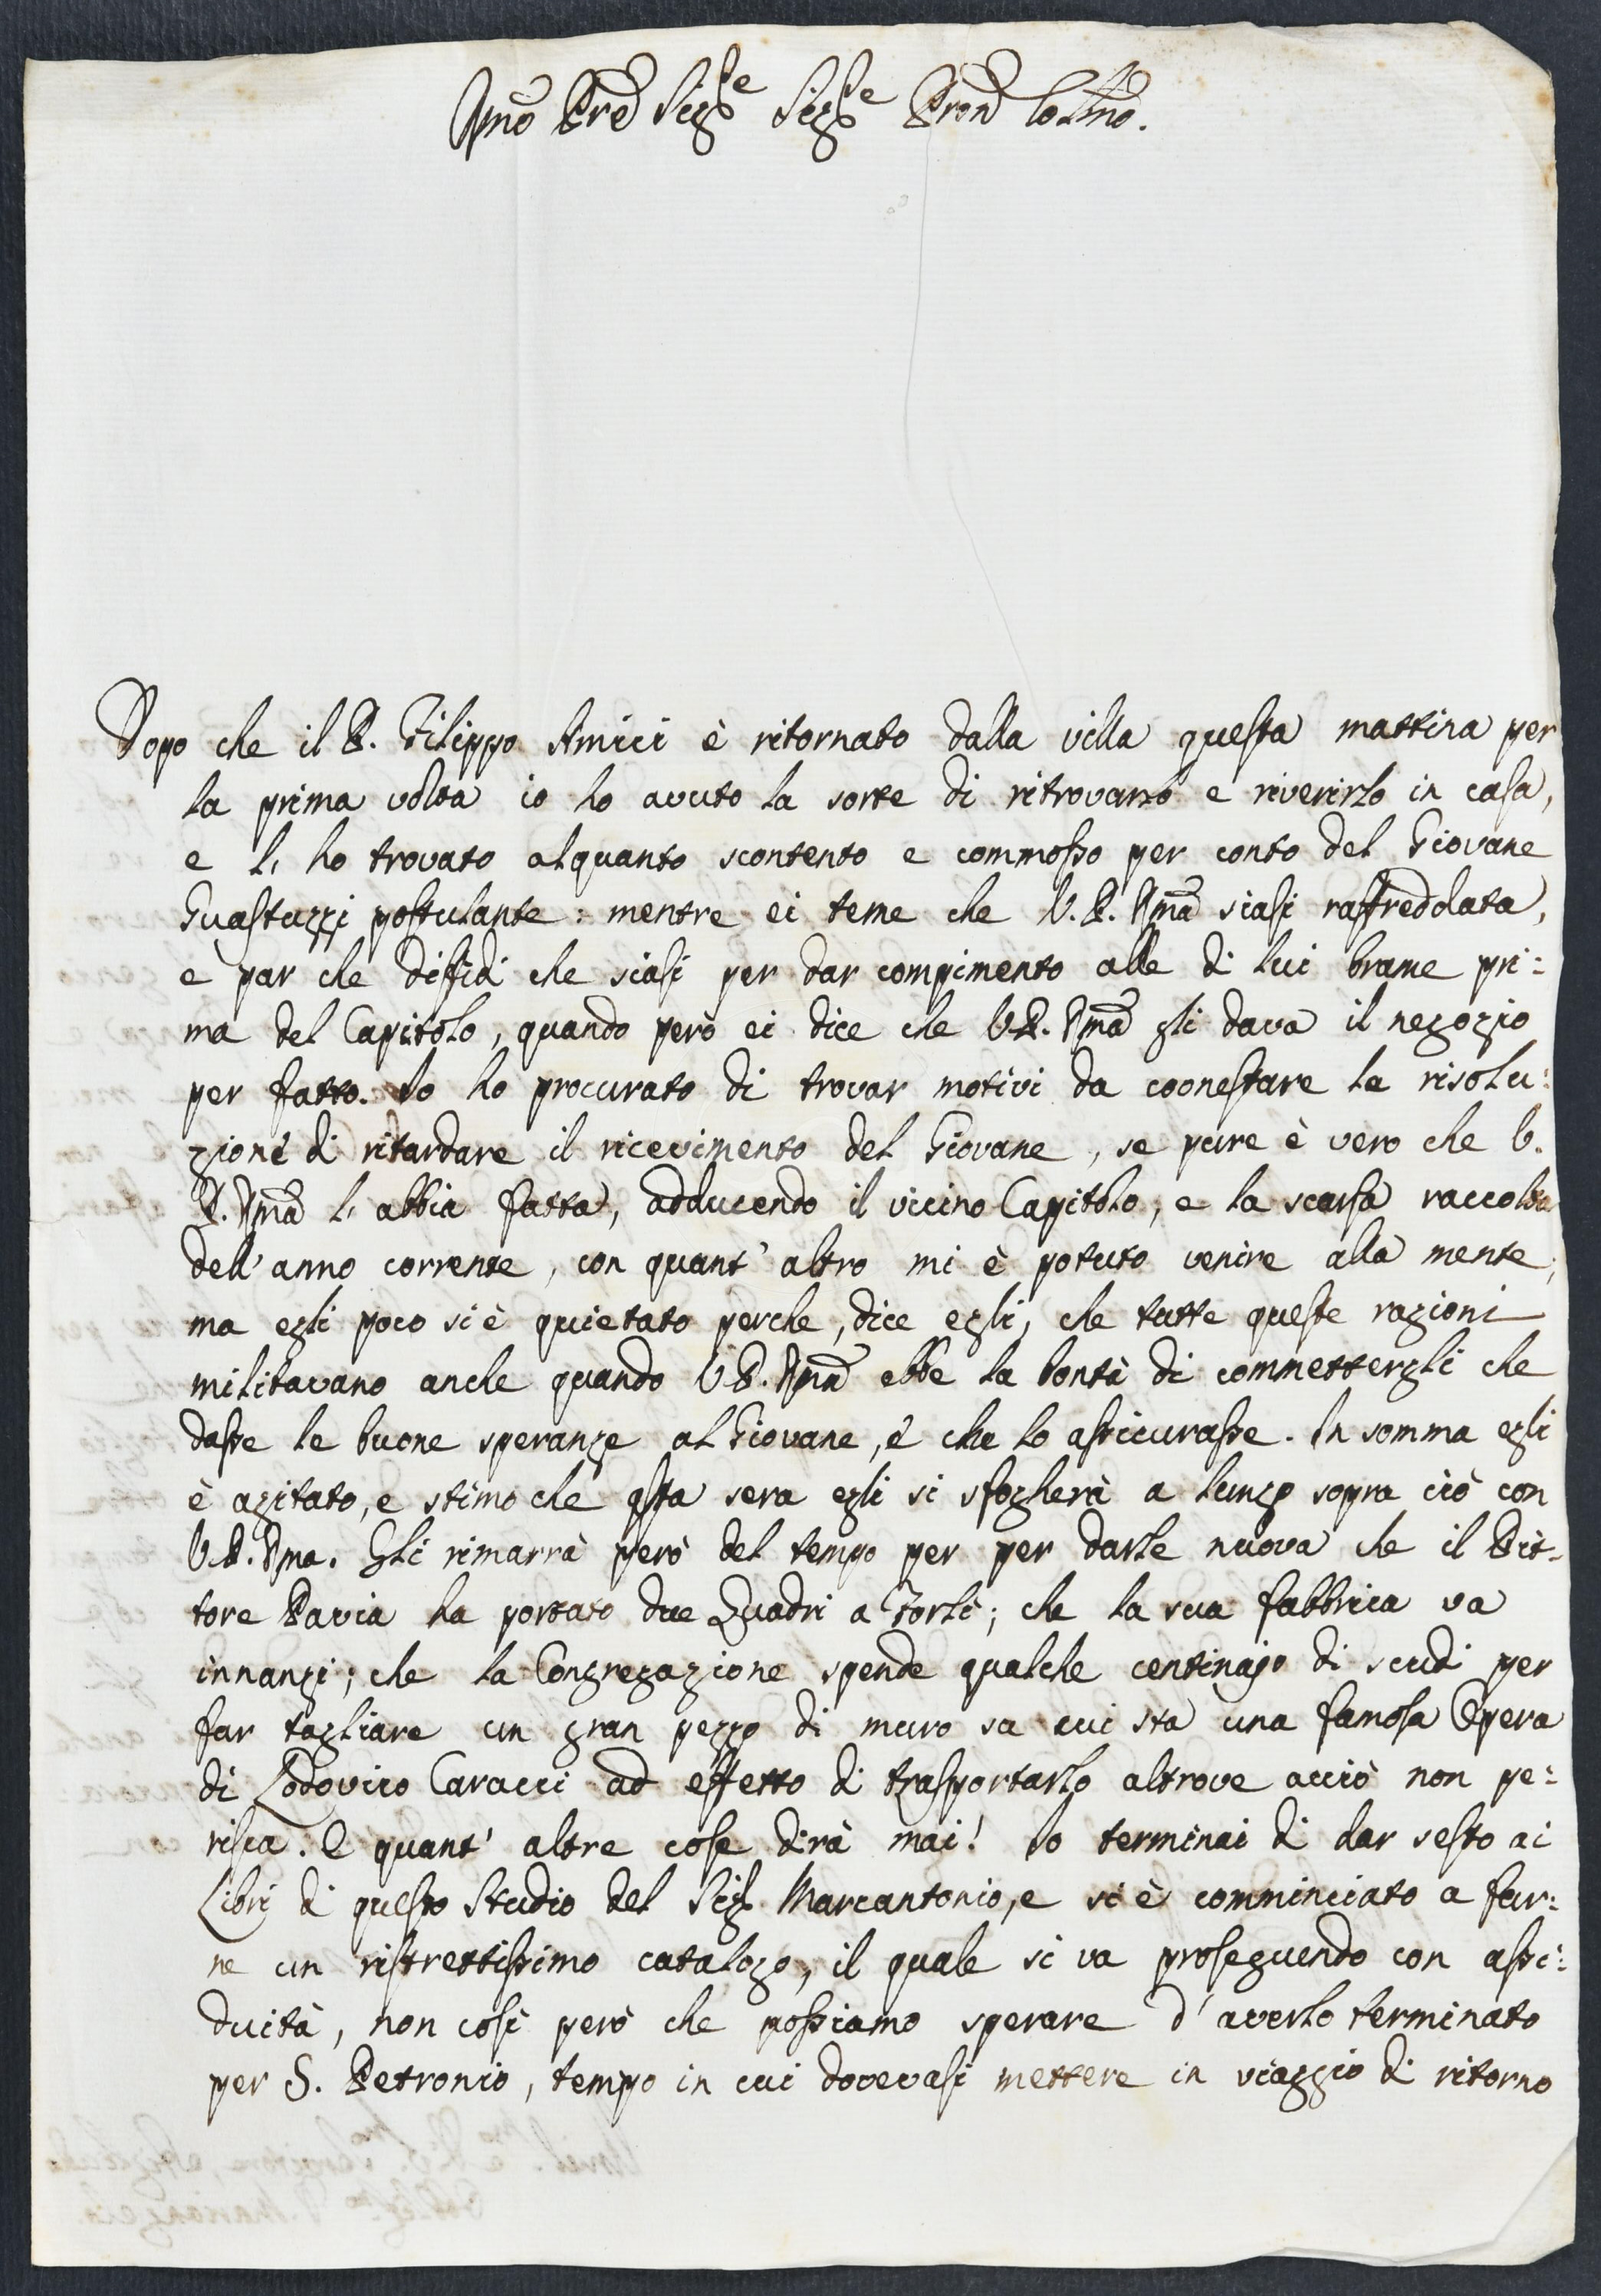 Rmo Pre Sigre Sigre Pron Colmo.
Dopo che il P. Filippo Amici è ritornato dalla villa questa mattina per
la prima volta io ho avuto la sorte di ritrovarlo e riverirlo in casa,
e l' ho trovato alquanto scontento e commosso per conto del Giovane
Guastuzzi postulante: mentre ei teme che V. P. Rma siasi raffreddata,
e par che diffidi che siasi per dar compimento alle di lui brame pri:
ma del Capitolo, quando però ei dice che V P. Rma gli dava il negozio
per fatto. Io ho procurato di trovar motivi da coonestare la risolu:
zione di ritardare il ricevimento del Giovane, se pure è vero che V.
P. Rma l' abbia fatta, adducendo il vicino Capitolo, e la scarsa raccolta
dell' anno corrente, con quant' altro mi è potuto venire alla mente;
ma egli poco si è quietato perche, dice egli, che tutte queste ragioni
militavano anche quando V P. Rma ebbe la bontà di commettergli che
dasse le buone speranze al Giovane, e che lo assicurasse. In somma egli
è agitato, e stimo che qsta sera egli si sfogherà a lungo sopra ciò con
V P. Rma. Gli rimarrà però del tempo per per darle nuova che il Pit:
tore Pavia ha portato due Quadri a Forlì; che la sua fabbrica va
innanzi; che la Congregazione spende qualche centinajo di scudi per
far tagliare un gran pezzo di muro su cui sta una famosa Opera
di Lodovico Caracci ad effetto di trasportarlo altrove acciò non pe:
risca. E quant' altre cose dirà mai! Io terminai di dar sesto ai
Libri di questo Studio del Sig. Marcantonio, e si è comminciato a far:
ne un ristrettissimo catalogo, il quale si va proseguendo con assi:
duità, non così però che possiamo sperare d' averlo terminato
per S. Petronio, tempo in cui dovevasi mettere in viaggio di ritorno